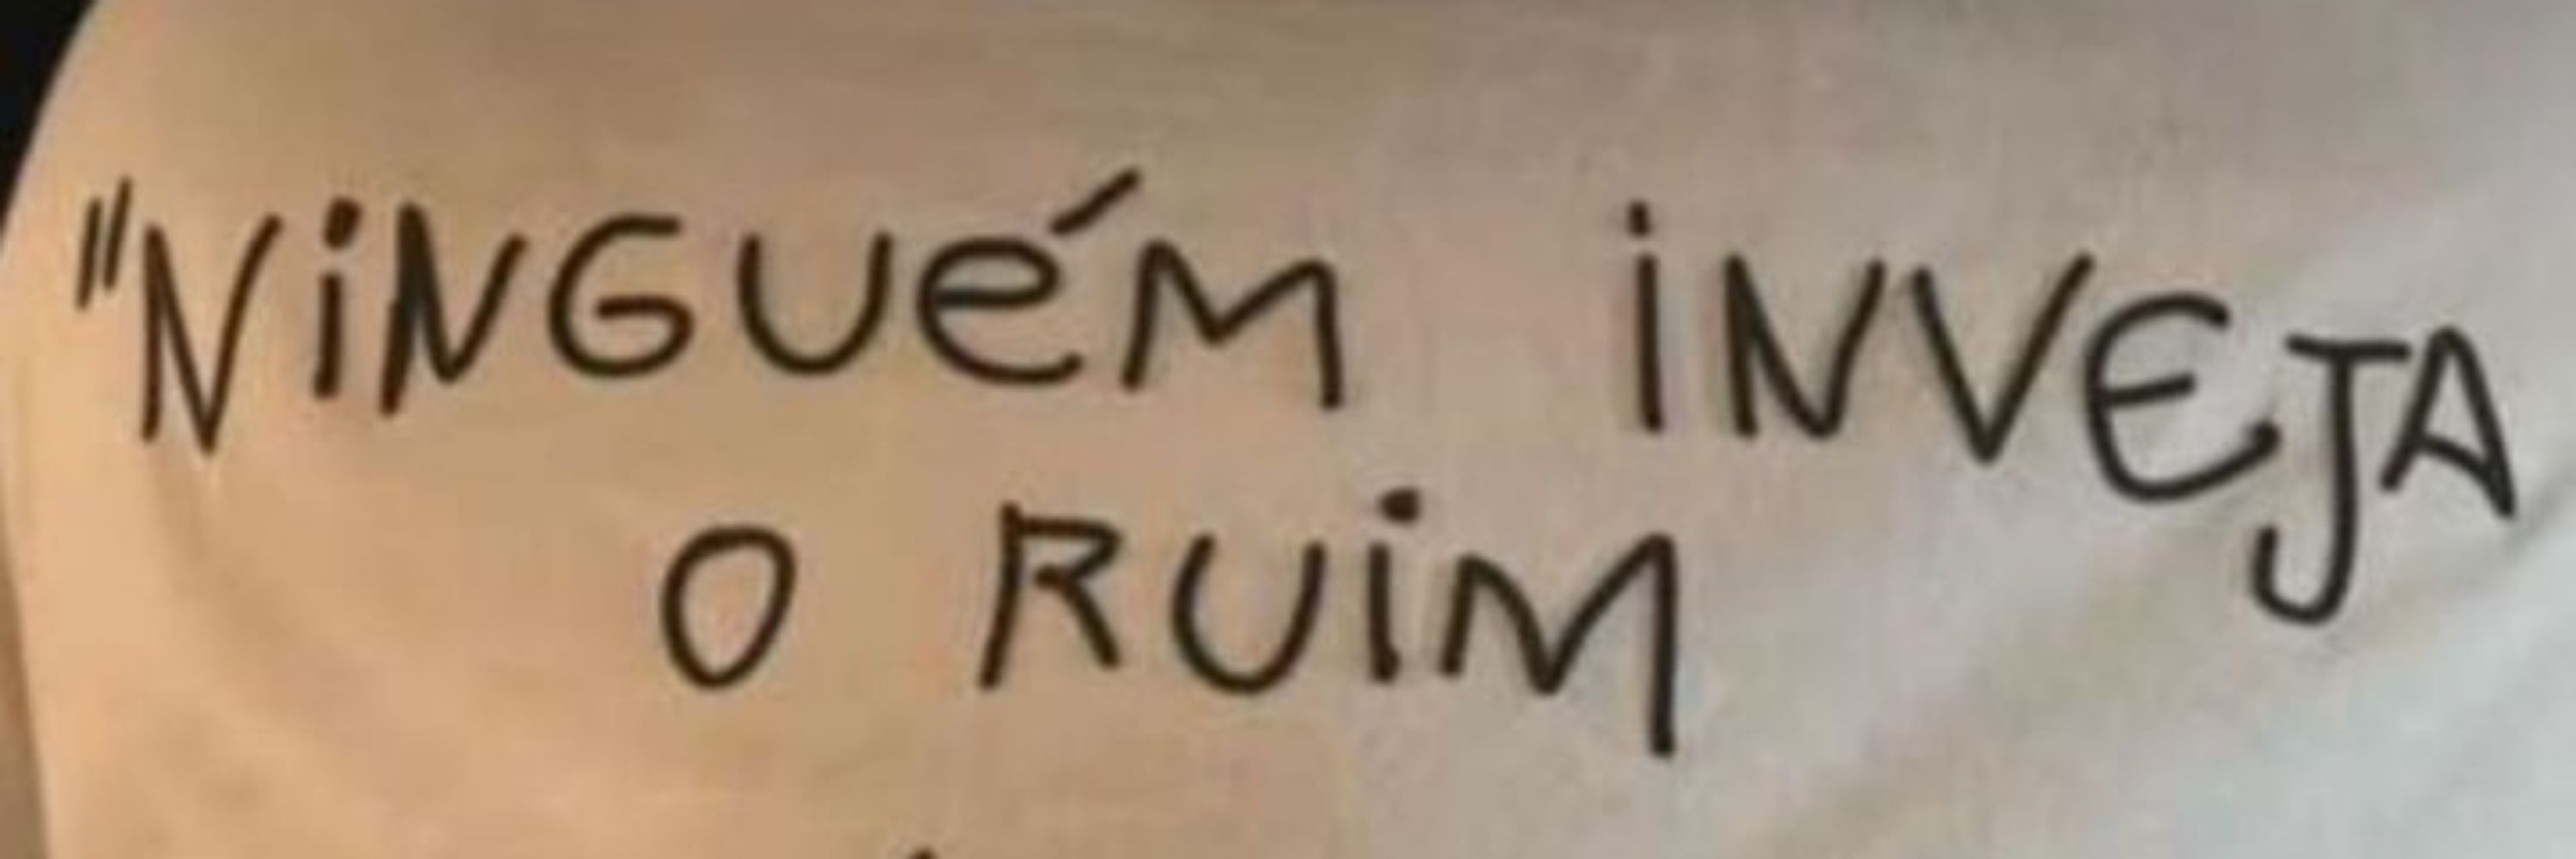 "NiNGUéM iNVEJA
O RUiM